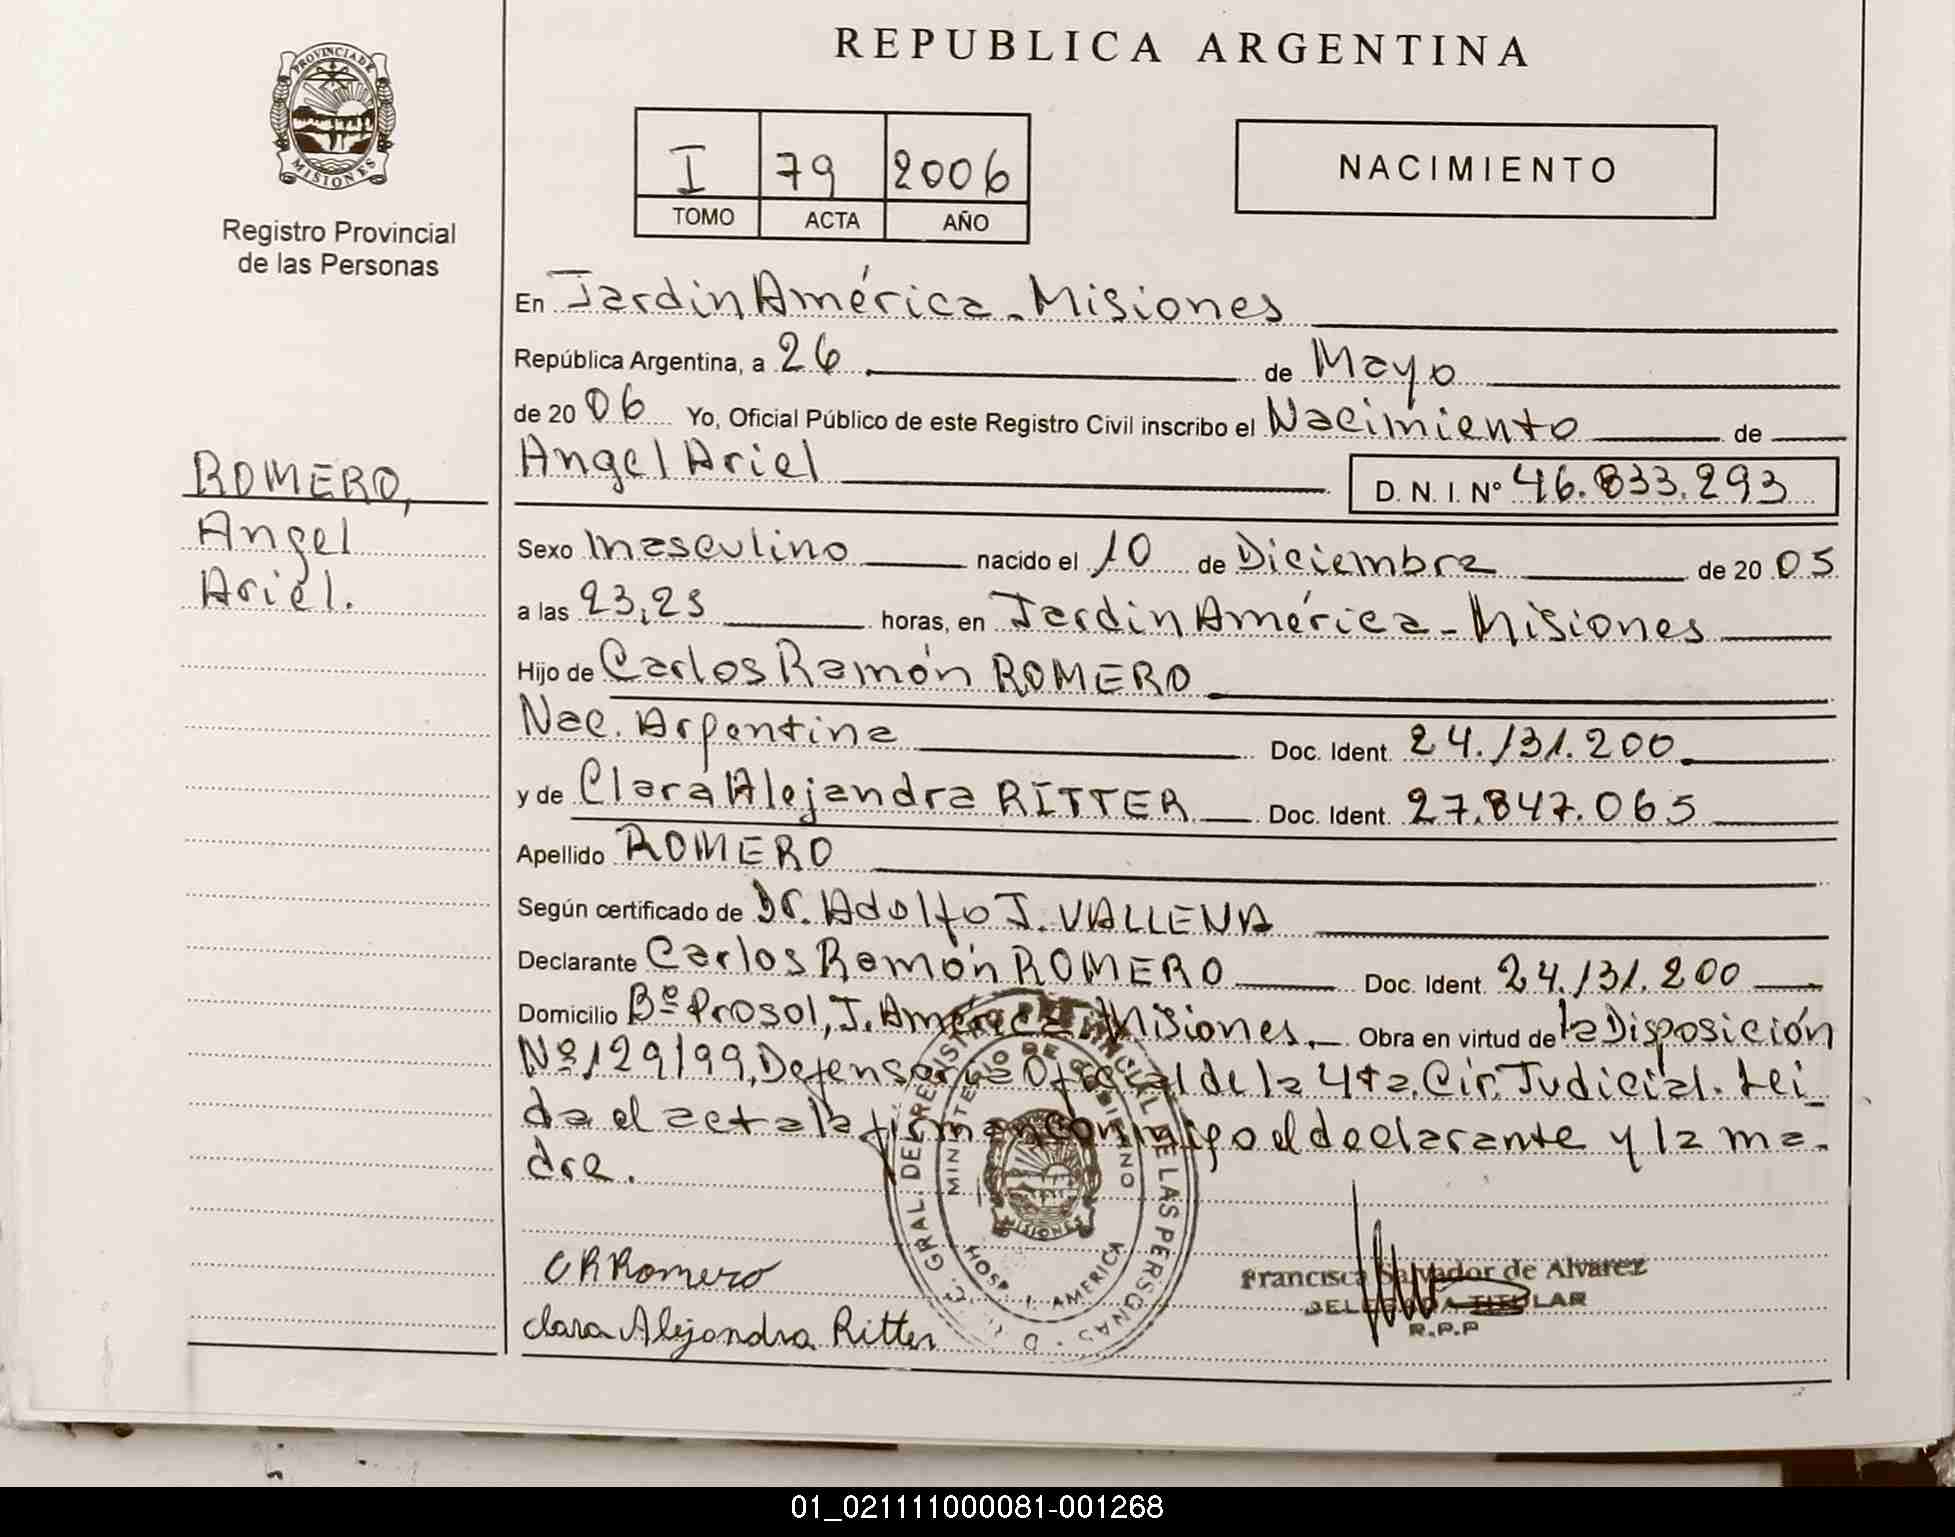 REPUBLICA ARGENTINA
PROVINCIA DE
MISIONES
Registro Provincial
de las Personas
I 79 2006
TOMO ACTA AÑO
NACIMIENTO
En Jardin América - Misiones
República Argentina, a 26 de Mayo
de 20 06 Yo, Oficial Público de este Registro Civil inscribo el Nacimiento de
Angel Ariel D. N. I. Nº 46.833.293
ROMERO,
Angel
Ariel.
Sexo masculino nacido el 10 de Diciembre de 20 05
a las 23,25 horas, en Jardin América - Misiones
Hijo de Carlos Ramón ROMERO
Nac. Argentina Doc. Ident. 24.131.200
y de Clara Alejandra RITTER Doc. Ident. 27.847.065
Apellido ROMERO
Según certificado de Dr. Adolfo J. VALLENA
Declarante Carlos Ramón ROMERO Doc. Ident. 24.131.200
Domicilio Bº Prosol, J. América Misiones. Obra en virtud de la Disposición
Nº 129/99, Defensoría Oficial de la 4ta. Cir. Judicial. Lei_
da el acta la firman conmigo el declarante y la ma-
dre.
GRAL. DEL REGISTRO PROVINCIAL DE LAS PERSONAS
MINISTERIO DE GOBIERNO
MISIONES
HOSP. J. AMERICA
C R Romero
Clara Alejandra Ritter
Francisca Salvador de Alvarez
DELEGADA TITULAR
R.P.P
01_021111000081-001268